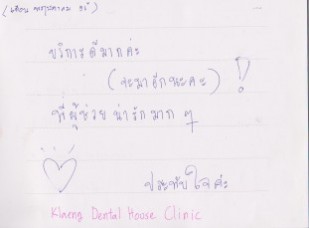 (เดือน พฤษภาคม
บริการดีมากค่ะ
(จะมาอีกนะคะ) !
พี่ผู้ช่วย น่ารักมาก ๆ
ประทับใจค่ะ
Klaeng Dental House Clinic